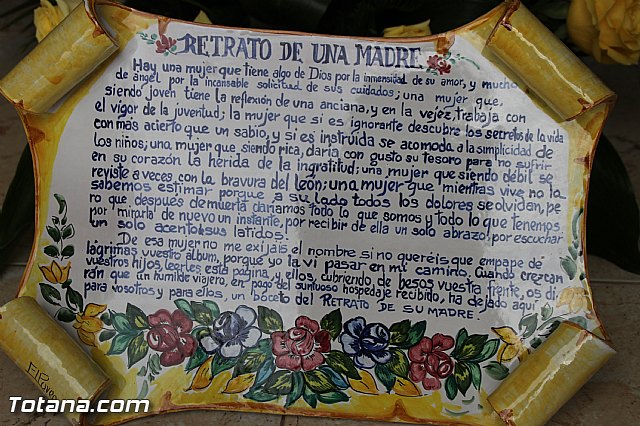 RETRATO DE UNA MADRE
Hay una mujer que tiene algo de Dios por la inmensidad de su amor, y mucho
de ángel por la incansable solicitud de sus cuidados; una mujer que,
siendo joven tiene la reflexión de una anciana, y en la vejez, trabaja con
el vigor de la juventud; la mujer que si es ignorante descubre los secretos de la vida
con más acierto que un sabio, y si es instruida se acomoda a la simplicidad de
los niños; una mujer, que siendo rica, daría con gusto su tesoro para no sufrir
en su corazón la herida de la ingratitud; una mujer que siendo débil se
reviste a veces con la bravura del león; una mujer que mientras vive no la
sabemos estimar porque a su lado todos los dolores se olvidan, pe
ro que después de muerta daríamos todo lo que somos y todo lo que tenemos
por mirarla de nuevo un instante, por recibir de ella un solo abrazo, por escuchar
un solo acento sus latidos.
De esa mujer no me exijáis el nombre si no queréis que empape de
lágrimas vuestro álbum, porque yo la vi pasar en mi camino. Cuando crezcan
vuestros hijos, leerles esta página, y ellos, cubriendo de besos vuestra frente, os di
rán que un humilde viajero, en pago del suntuoso hospedaje recibido, ha dejado aquí
para vosotros y para ellos, un boceto del RETRATO DE SU MADRE.
Totana.com